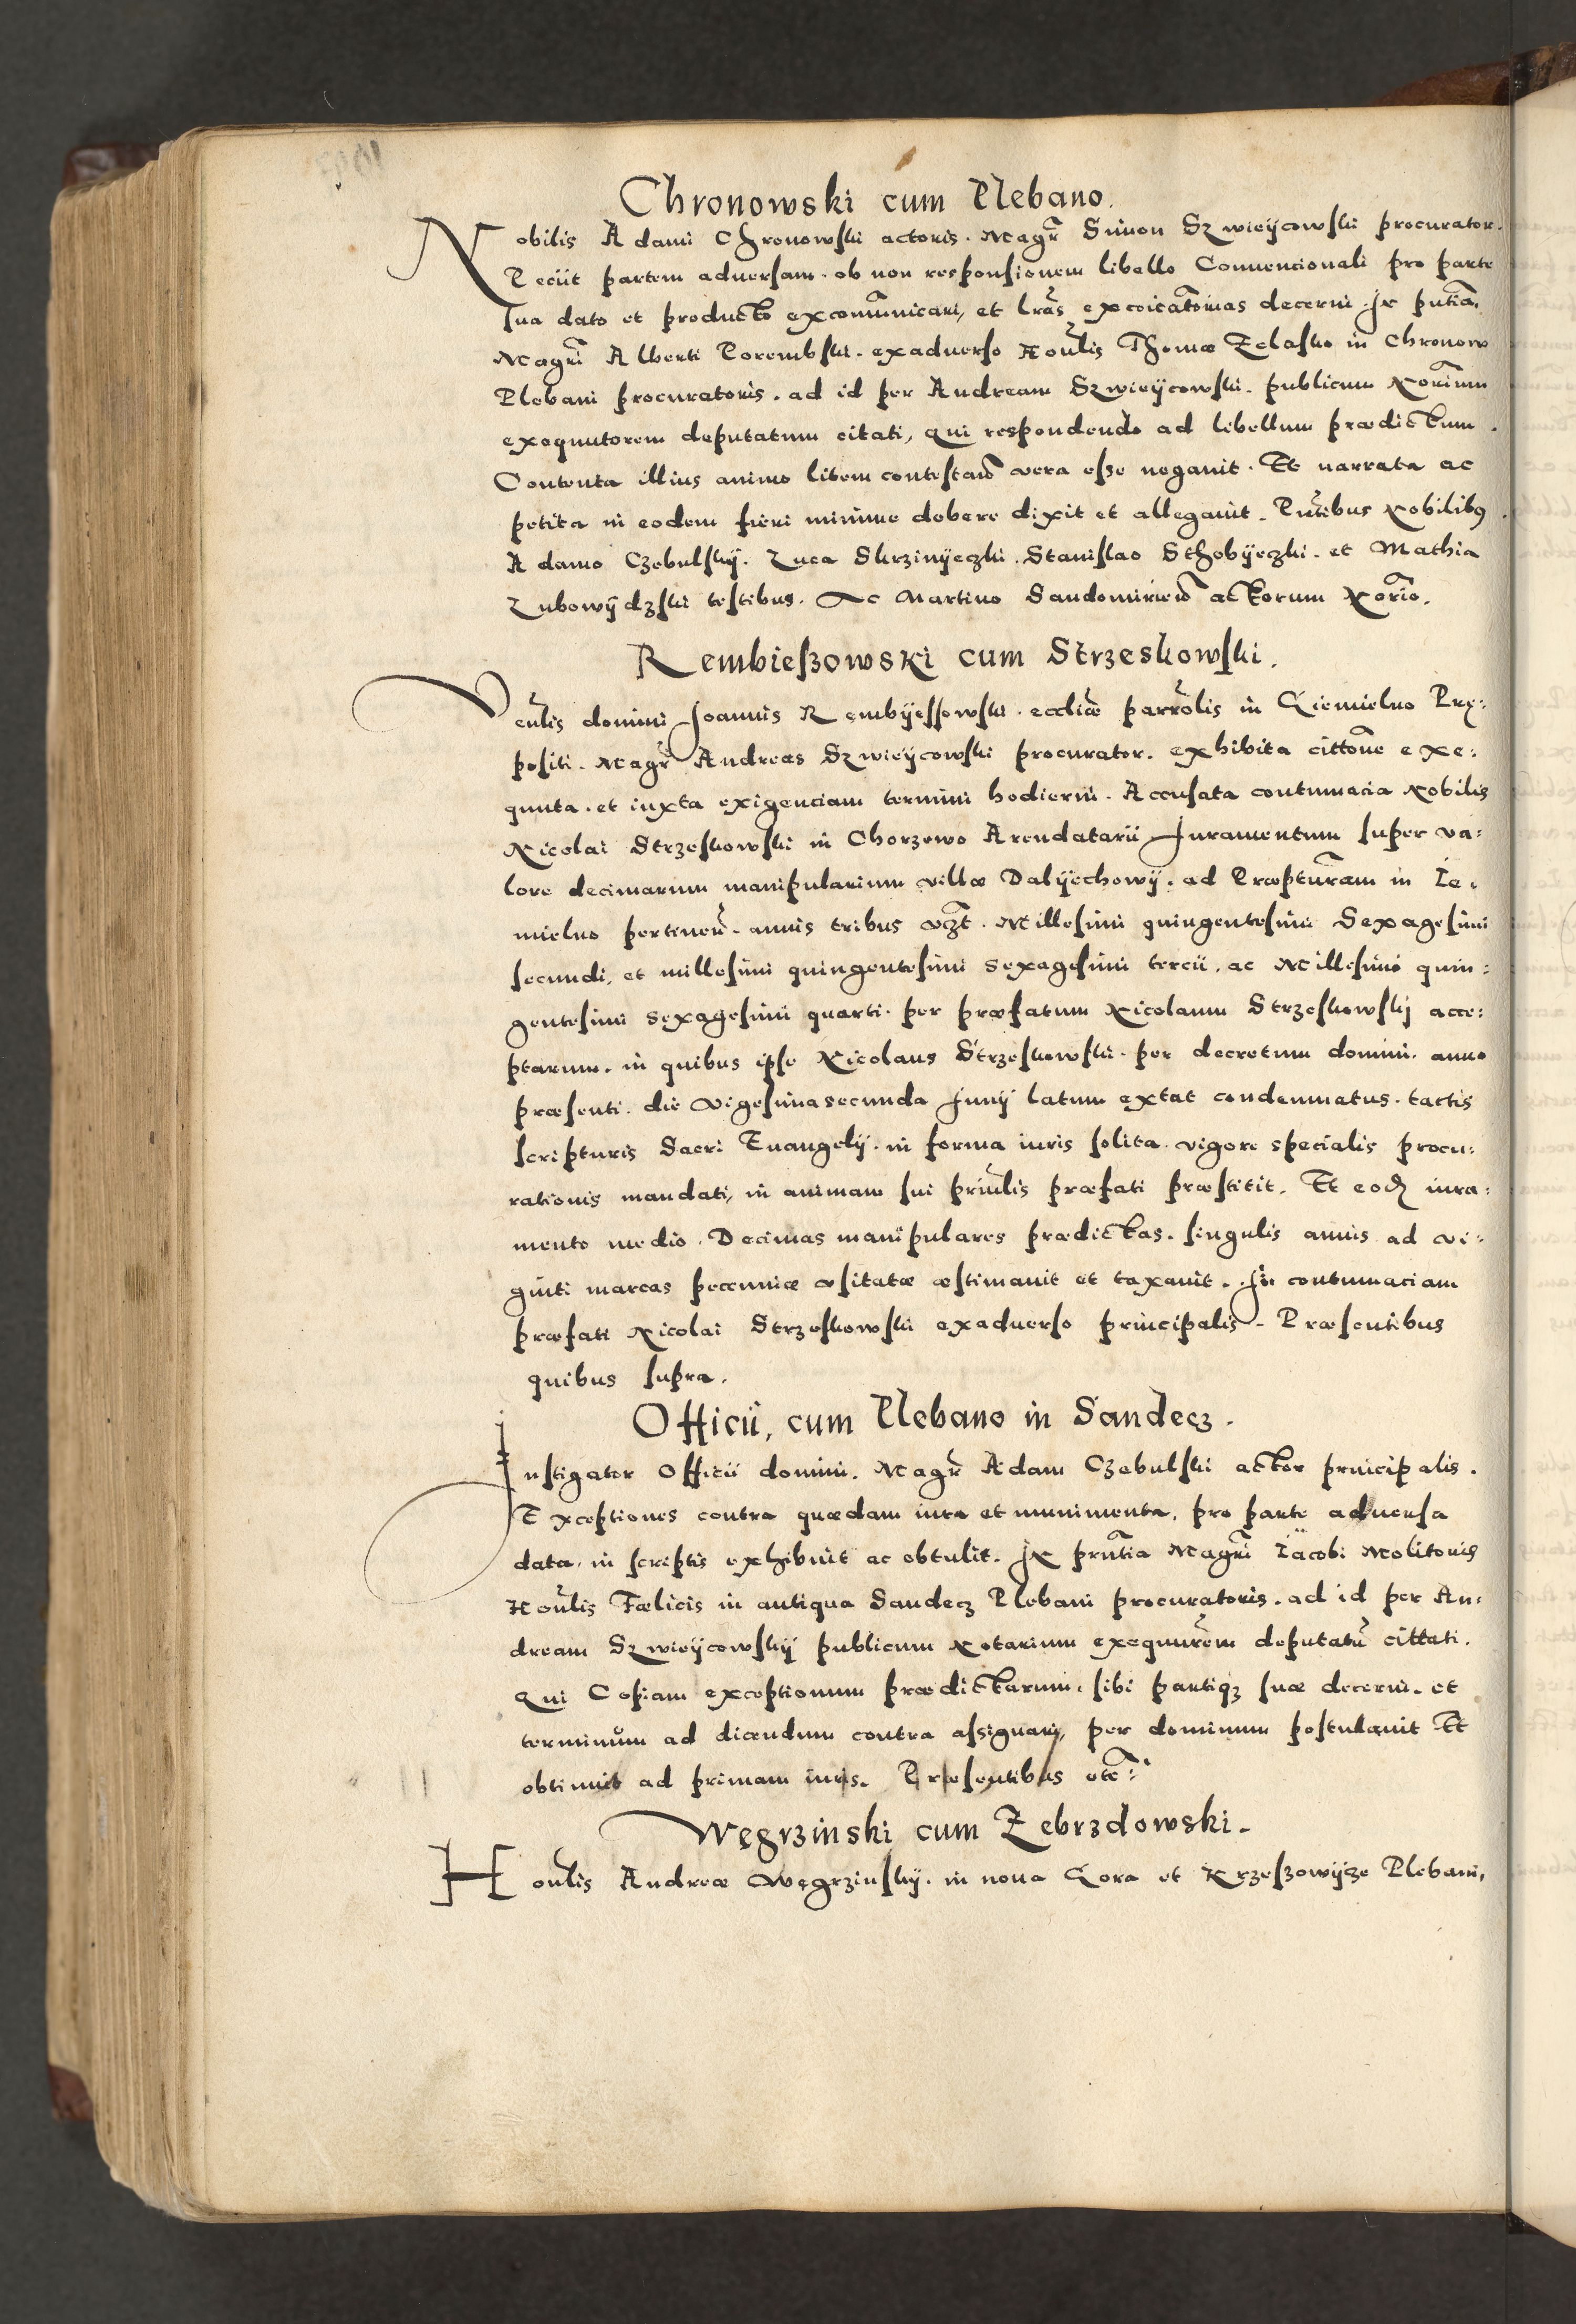 Chronowski cum Plebano.
Nobilis Adami Chronowski actoris. Magr̃ Simon Szwieÿcowski procurator.
Peciit partem aduersam. ob non responsionem libello Conuencionali pro parte
sua dato et producto excomũnicari, et lrãs excoicatõrias decerni. In pñtia.
Magrĩ Alberti Porembski. exaduerso Honlis Thomæ Zelasko in Chronow
Plebani procuratoris. ad id per Andream Szwieÿcowski. publicum Norium
exequutorem deputatum citati, qui respondendo ad libellum prædictum.
Contenta illius animo litem contestañ vera esse negauit. Et narrata ac
petita in eodem fieri minime debere dixit et allegauit. Pñtibus Nobilibꝫ
Adamo Czebulskÿ. Luca Skrzinÿeczki. Stanislao Sthobÿeczki. et Mathia
Lubowÿdzski testibus. Ac Martino Sandomirień actorum Norio.
Rembieszowski cum Strzeskowski.
Venlis domini Joannis Rembÿessowski. eccliæ parrolis in Kiemielno Præ:
positi. Magr̃ Andreas Szwieÿcowski procurator. exhibita cittone exe:
quuta. et iuxta exigenciam termini hodierni. Accusata contumacia Nobilis
Nicolai Strzeskowski in Chorzewo Arendatarii Juramentum super va:
lore decimarum manipularium villæ Dalÿechowÿ. ad Præpturam in Ie:
mielno pertineñ. annis tribus vꝫt. Millesimi quingentesimi Sexagesimi
secundi, et millesimi quingentesimi sexagesimi tercii. ac Millesimi quin:
gentesimi sexagesimi quarti. per præfatum Nicolaum Strzeskowskÿ acce:
ptarum. in quibus ipse Nicolaus Strzeskowski. per decretum domini. anno
præsenti. die vigesimasecunda Junÿ latum extat condemnatus. tactis
scripturis Sacri Euangelÿ. in forma iuris solita. vigore specialis procu:
rationis mandati, in animam sui prinlis præfati præstitit. Et eoď iura:
mento medio. Decimas manipulares prædictas. singulis annis ad vi:
ginti marcas pecuniæ vsitatæ æstimauit et taxauit. In contumaciam
præfati Nicolai Strzeskowski exaduerso principalis. Præsentibus
quibus supra.
Officii, cum Plebano in Sandecz.
Instigator Officii domini. Magr̃ Adam Czebulski actor principalis.
Exceptiones contra quædam iura et munimenta, pro parte aduersa
data, in scriptis exhibuit ac obtulit. In prñtia Magrĩ Iacobi Molitoris
Honlis Fælicis in antiqua Sandecz Plebani procuratoris. ad id per An:
dream Szwieÿcowskÿ publicum Notarium exequurem deputatũ cittati.
Qui Copiam exceptionum prædictarum. sibi partiqꝫ suæ decerni. et
terminum ad dicendum contra assignari, per dominum postulauit Et
obtinuit ad primam iuris. Præsentibus etc:
Węgrzinski cum Zebrzdowski.
Honlis Andreæ Węgrzinskÿ. in noua Gora et Krzeszowÿcze Plebani,